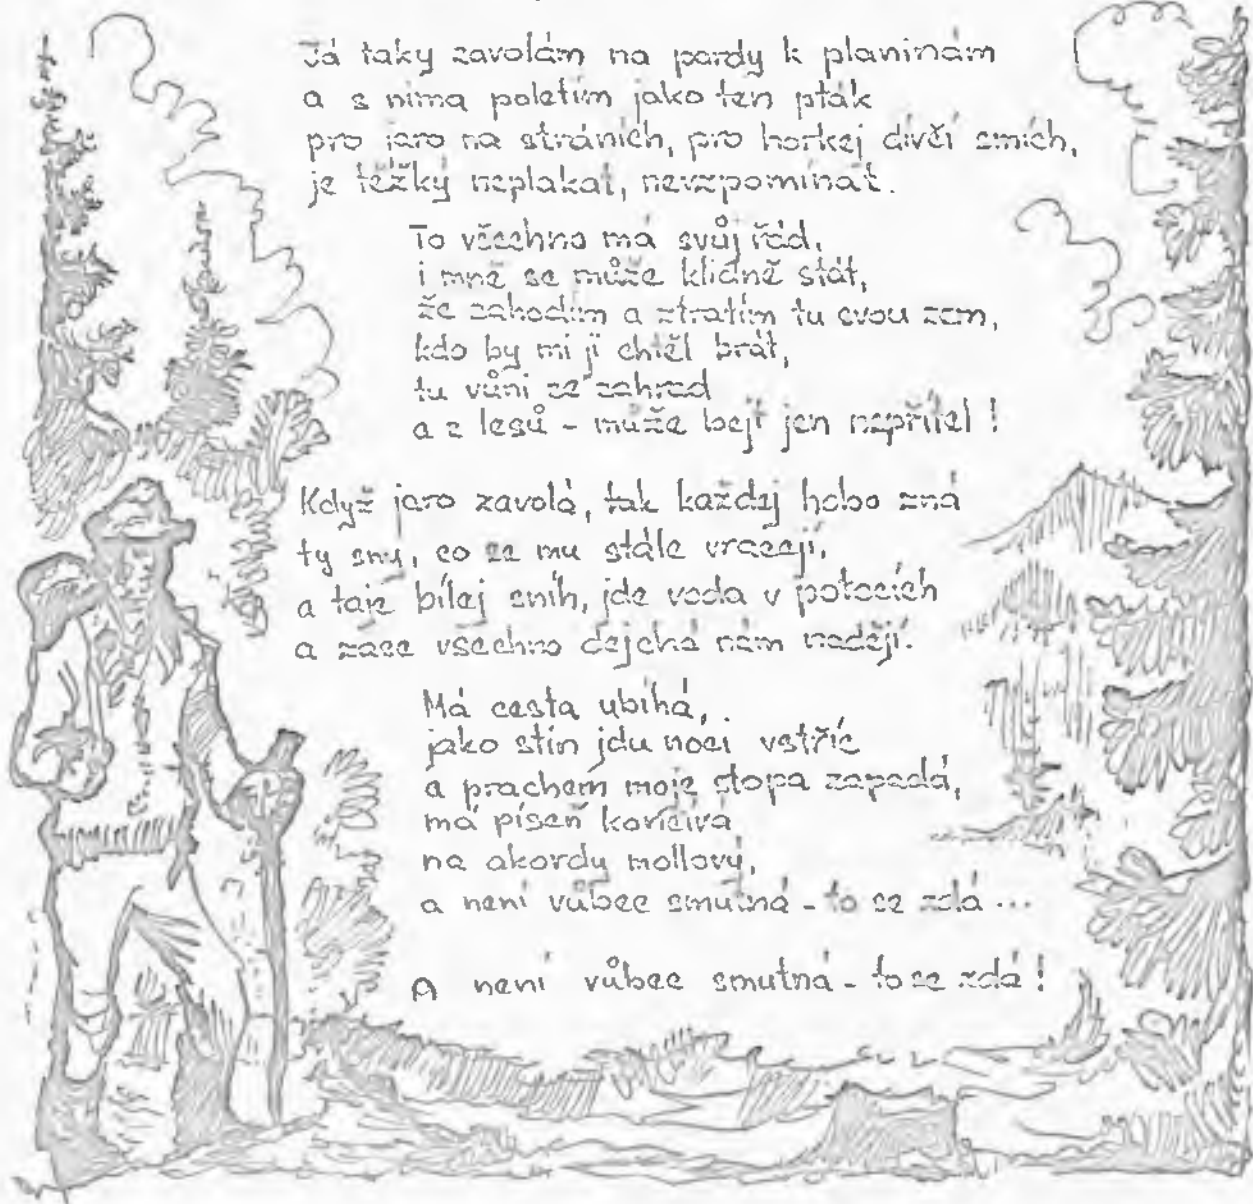 Já taky zavolám na pardy k planinám
a s nima poletím jako ten pták
pro jaro na stráních, pro horkej dívčí smích,
je těžký neplakat, nevzpomínat.
To všechno má svůj řád,
i mně se může klidně stát,
že zahodím a ztratím tu svou zem,
kdo by mi ji chtěl brát,
tu vůni ze zahrad
a z lesů - může bejt jen nepřítel!
Když jaro zavolá, tak každej hobo zná
ty sny, co se mu stále vracejí,
a taje bílej sníh, jde voda v potocích
a zase všechno dejchá nám nadějí.
Má cesta ubíhá,
jako stín jdu noci vstříc
a prachem moje stopa zapadá,
má píseň končívá
na akordy mollový,
a není vůbec smutná - to se zdá ...
A není vůbec smutná - to se zdá!